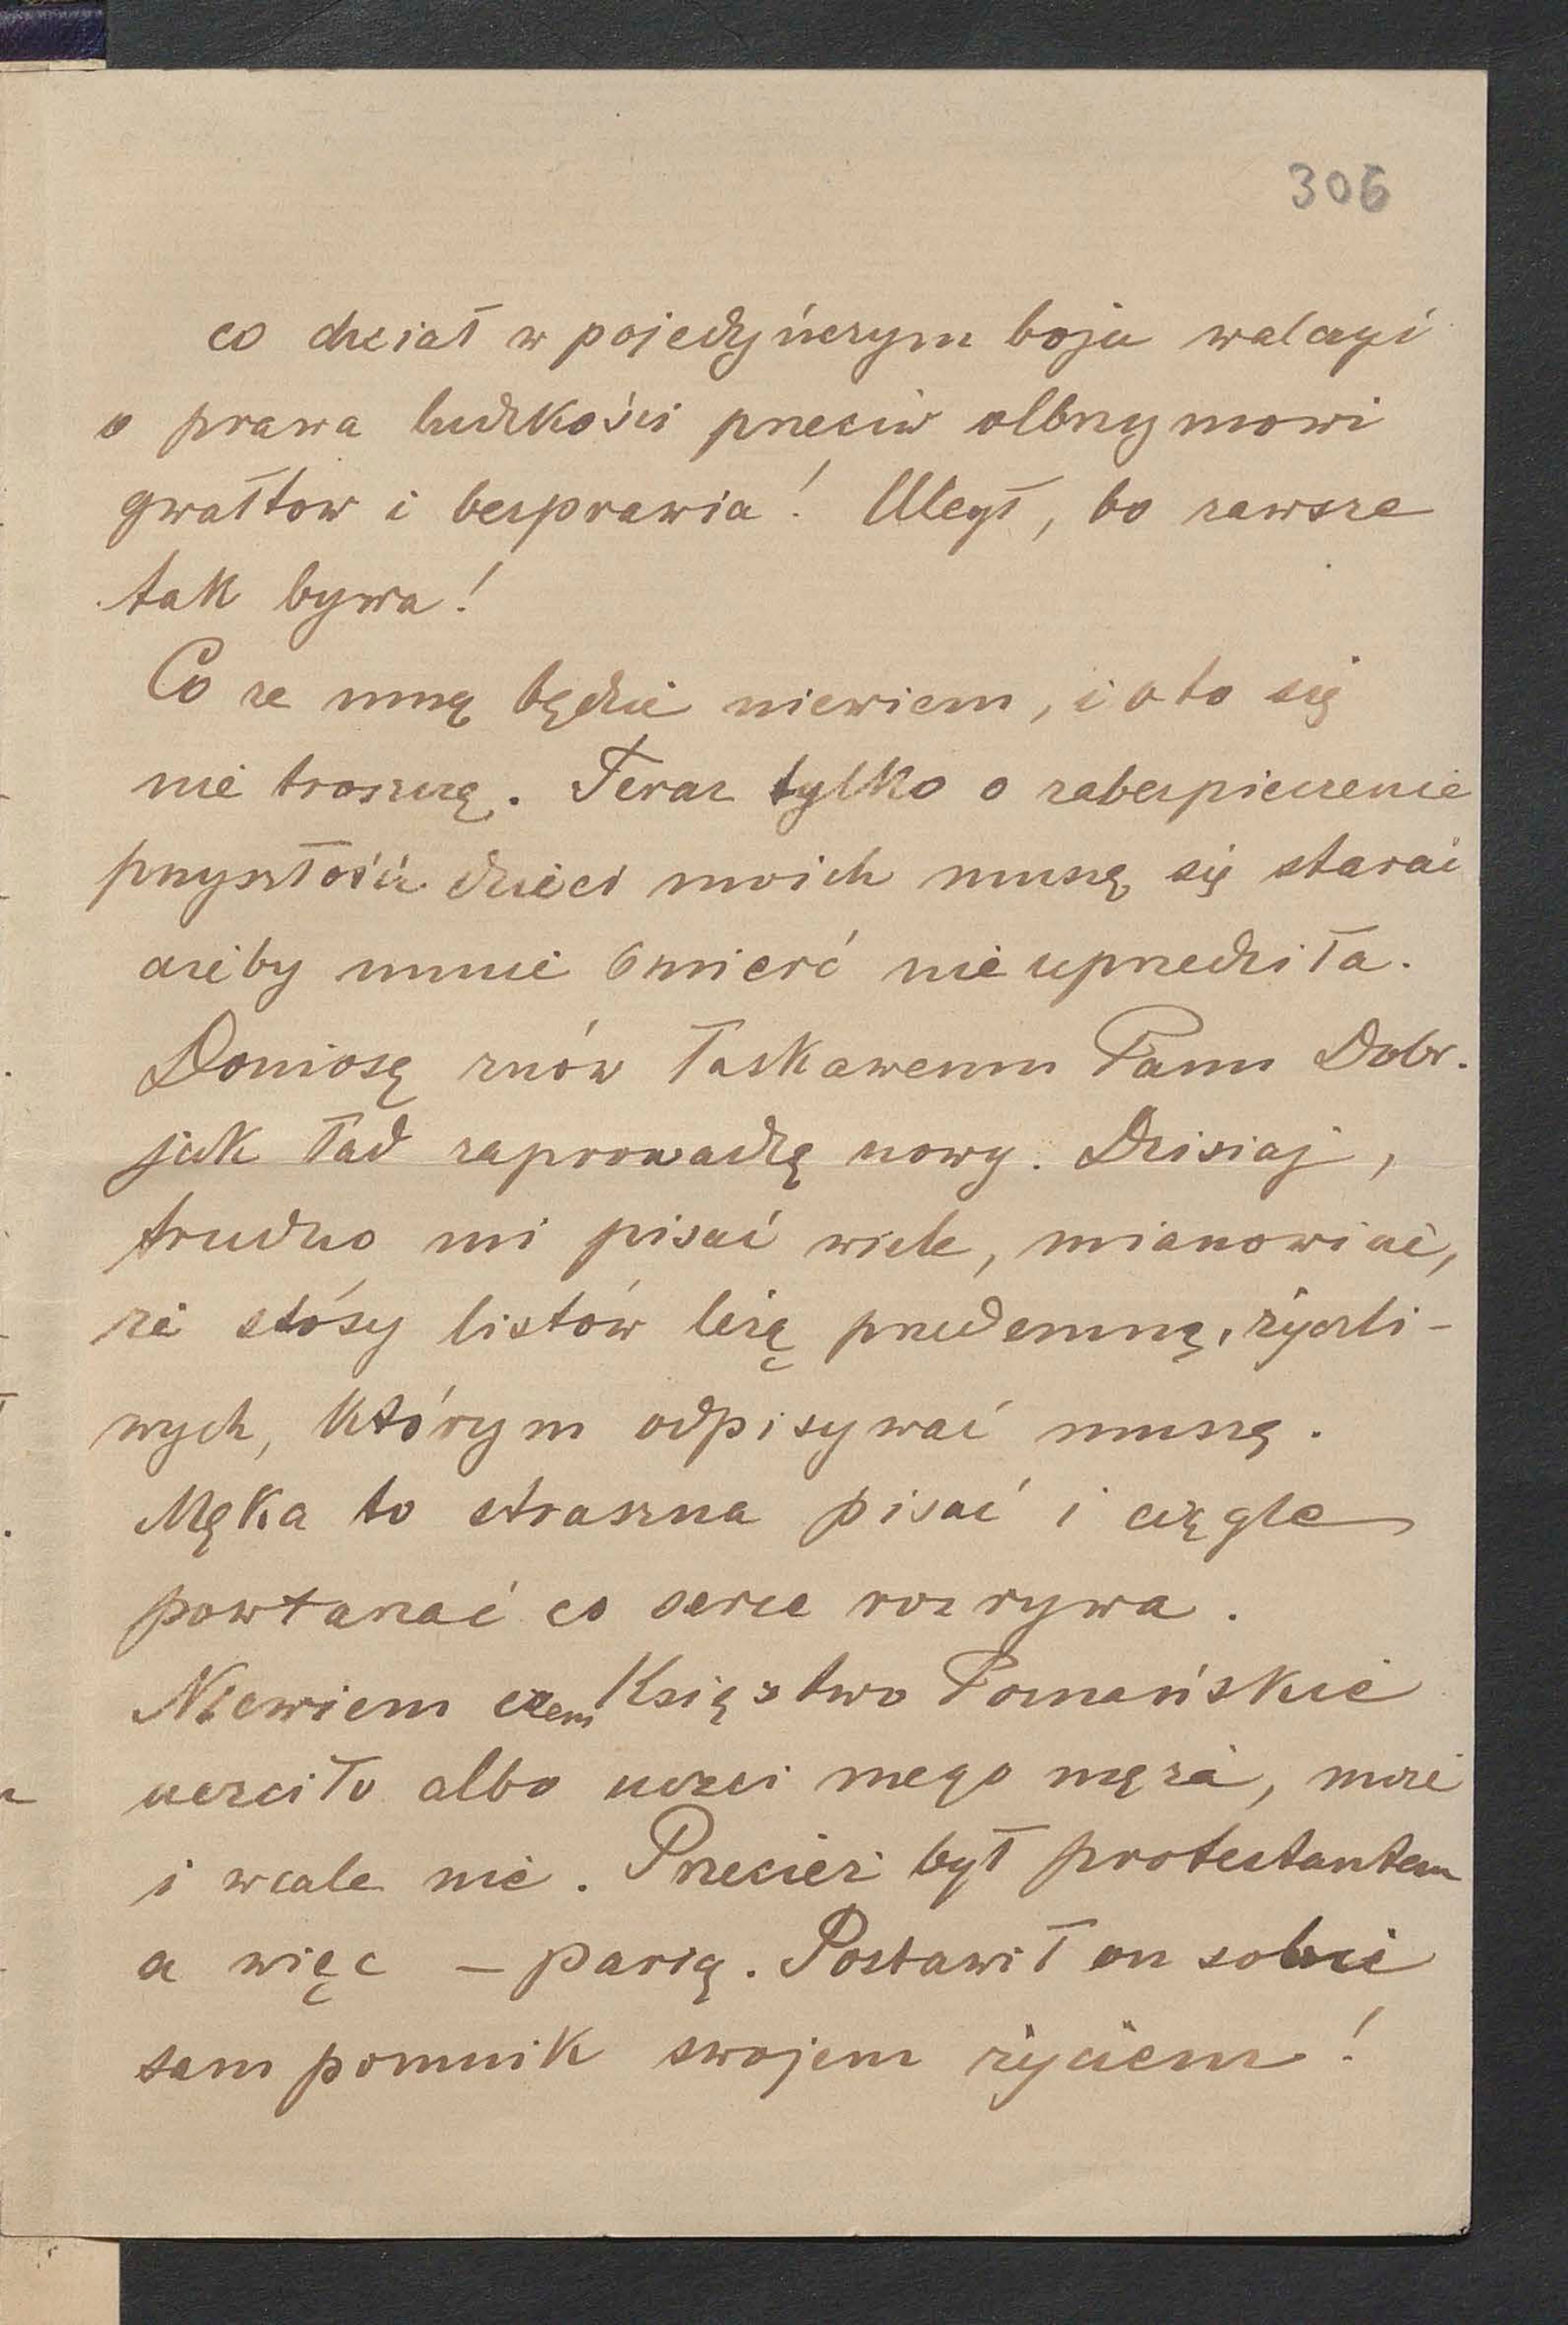 306
co chciał w pojedyńczym boju walczyć
o prawa ludzkości przeciw olbrzymowi
gwałtow i bezprawia! Uległ, bo zawsze
tak bywa!
Co ze mną będzie niewiem, i o to się
nie troszczę. Teraz tylko o zabezpieczenie
przyszłości dzieci moich muszę się starać
ażeby mnie śmierć nie uprzedziła.
Doniosę znów Łaskawemu Panu Dobr.
jak ład zaprowadzę nowy. Dzisiaj,
trudno mi pisać wiele, mianowicie,
że stósy listów leżą przedemną, życzli-
wych, którym odpisywać muszę.
Męka to straszna pisać i ciągle
powtarzać co serce rozrywa.
Niewiem czem Księstwo Poznańskie
uczciło albo uczci mego męża, może
i wcale nie. Przecież był protestantem
a więc – parią. Postawił on sobie
sam pomnik swojem życiem!